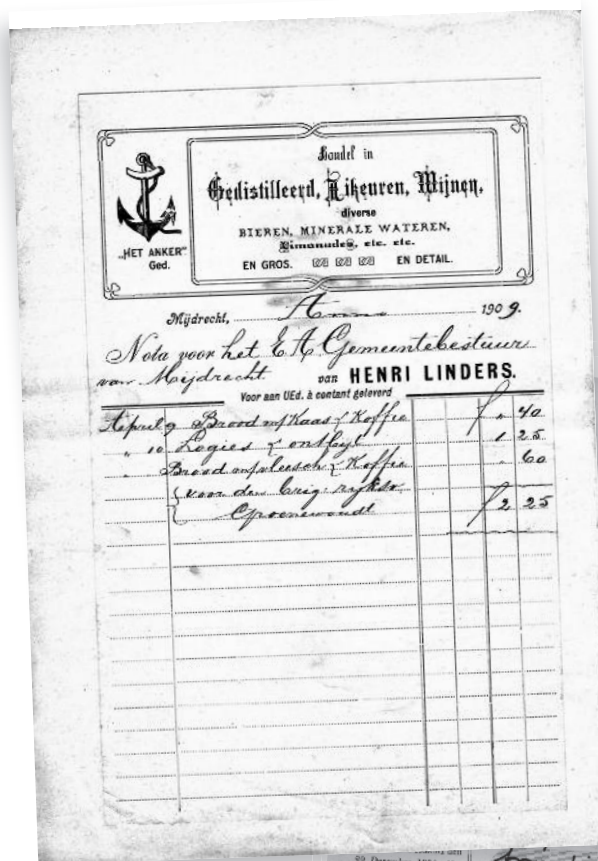 Handel in
Gedistilleerd, Likeuren, Wijnen,
diverse
BIEREN, MINERALE WATEREN,
Limonades, etc. etc.
EN GROS. EN DETAIL.
„HET ANKER"
Ged.
Mijdrecht, Anno 1909.
Nota voor het E A Gemeentebestuur
van Mijdrecht van HENRI LINDERS.
Voor aan UEd. à contant geleverd
April 9 Brood m/Kaas & Koffie f " 40
" 10 Logies & ontbijt 1 25
" Brood m/vleesch & Koffie " 60
voor den brig. rijksv.
Groenewoudt f 2 25